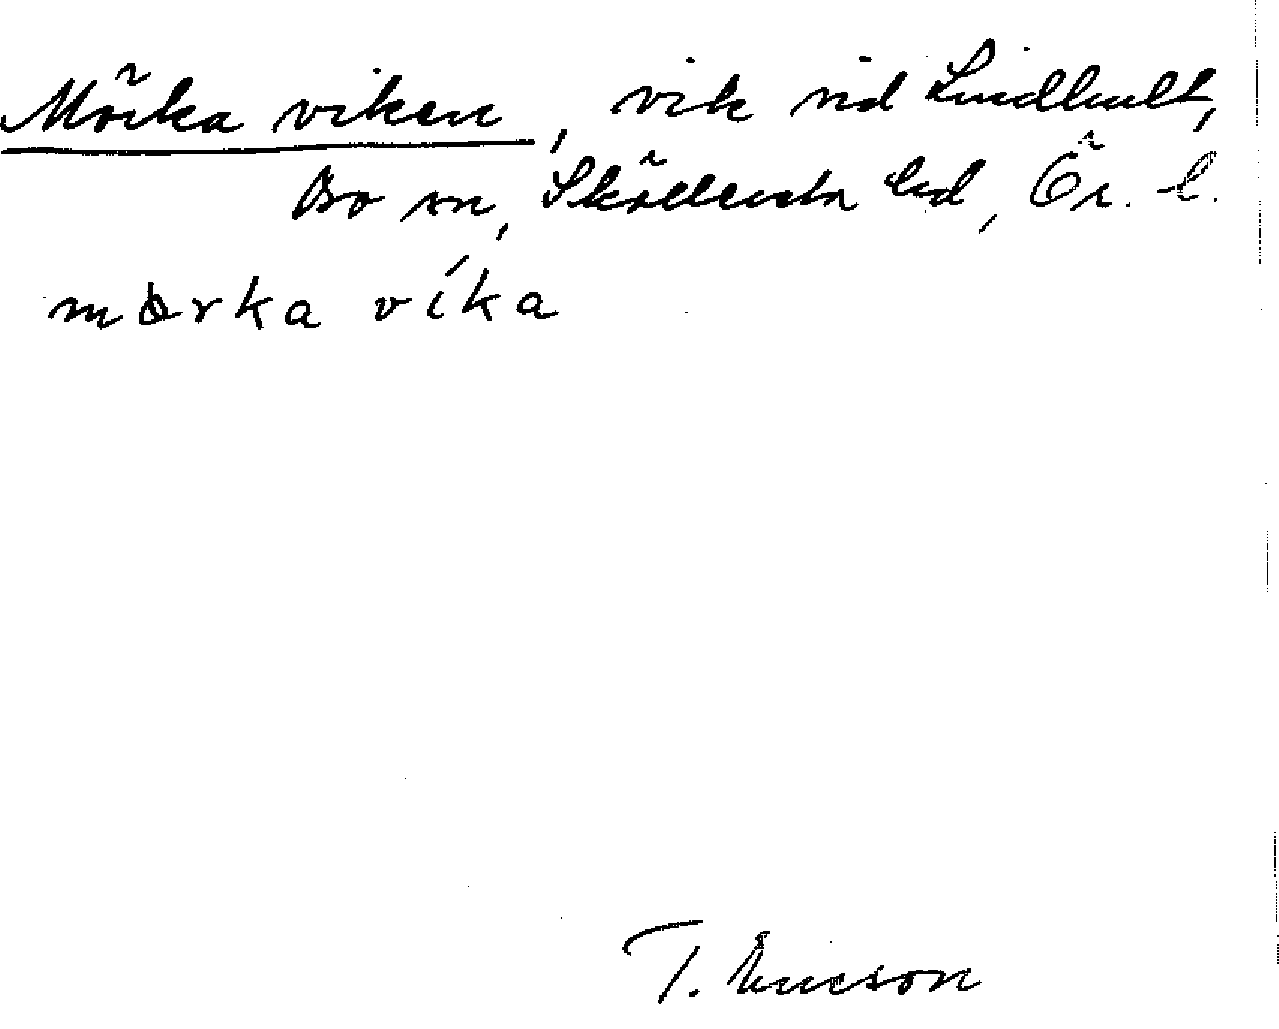 Mörka viken, vik vid Lindhult,
Bo sn, Sköllersta hd, Ör. l.
mörka vika
T. Ericson